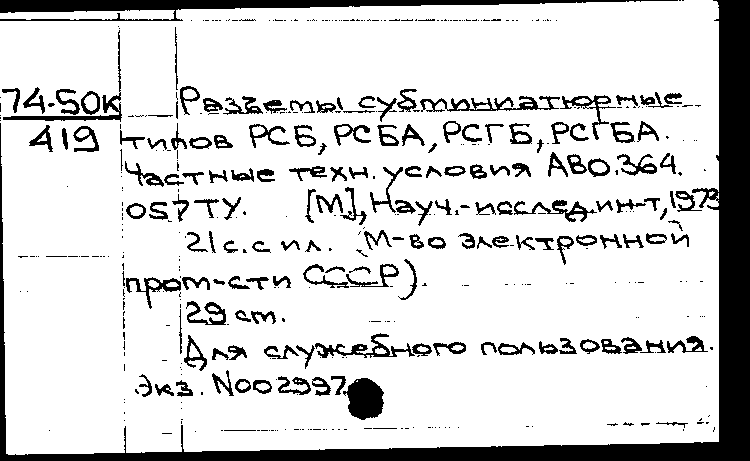 74-50к Разъемы субминиатюрные
419 типов РСБ, РСБА, РСГБ, РСГБА.
Частные техн. условия АВО.364.
057ТУ. [М], Науч.-исслед.ин-т, 1973
21с.с ил. (М-во электронной
пром-сти СССР).
29 ст.
Для служебного пользования.
Экз. N002997.